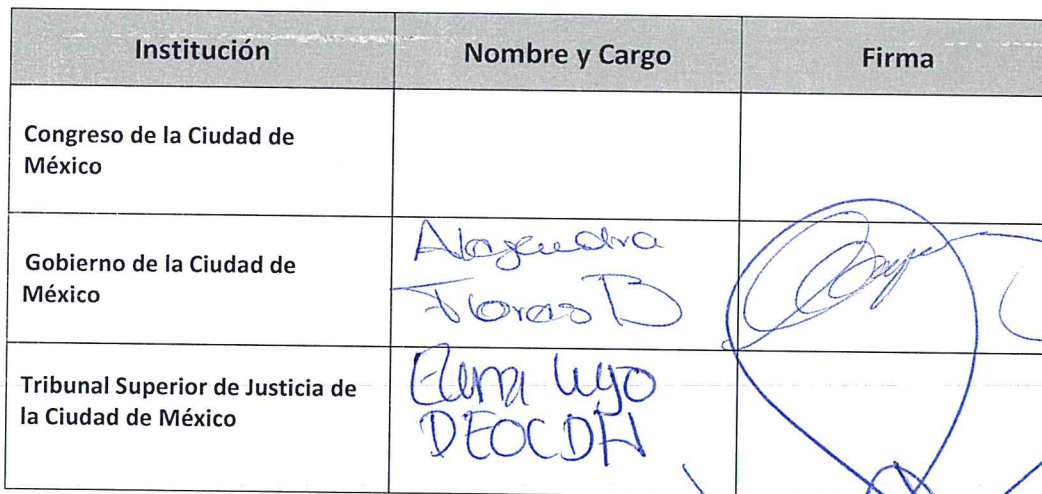 Institución Nombre y Cargo Firma
Congreso de la Ciudad de
México
Gobierno de la Ciudad de
México
Alejandra
Flores B
Tribunal Superior de Justicia de
la Ciudad de México
DEOCDH